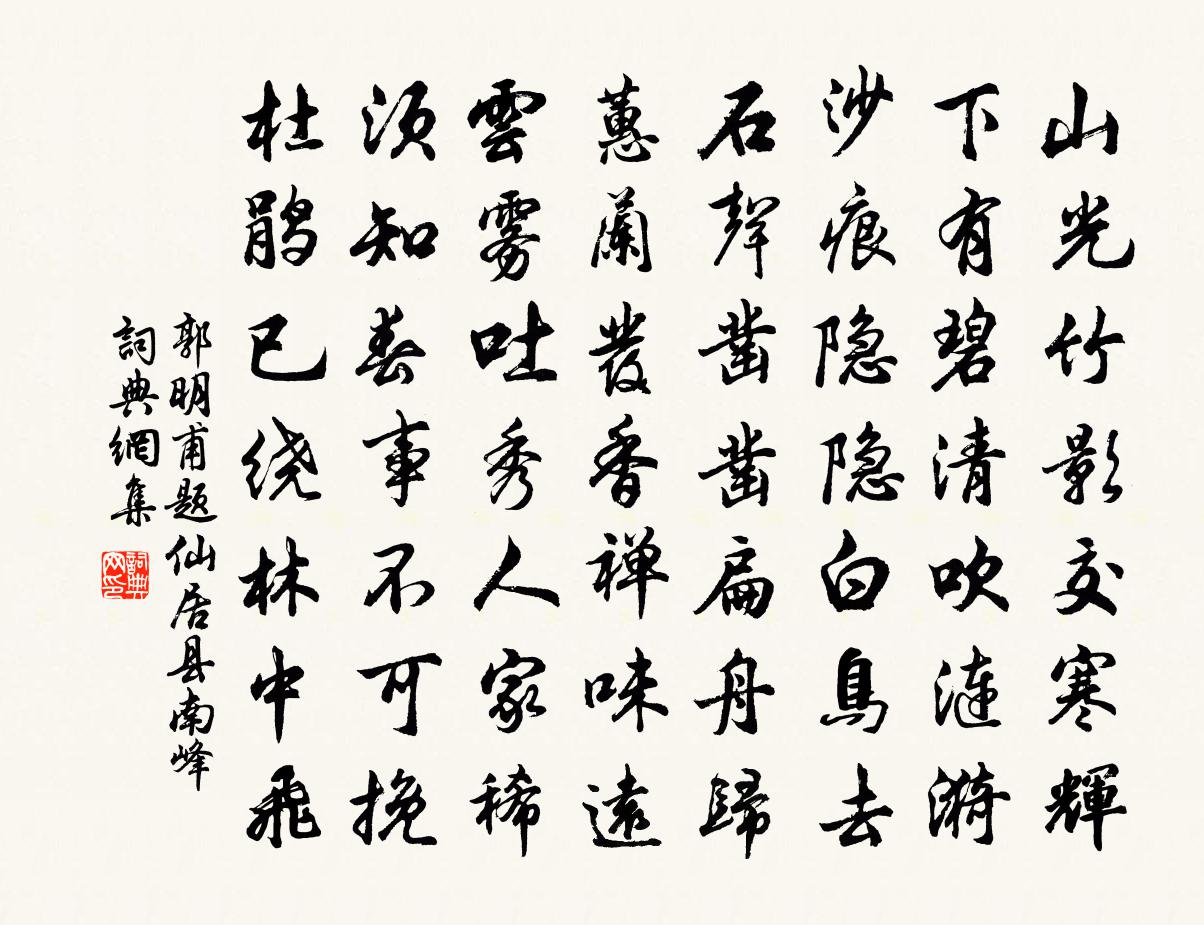 山光竹影交寒輝
下有碧清吹漣漪
沙痕隐隐白鳥去
石聲凿凿扁舟歸
蕙蘭發香禅味遠
雲雾吐秀人家稀
须知春事不可挽
杜鹃已绕林中飛
郭明甫题仙居县南峰
詞典網集
詞典网印